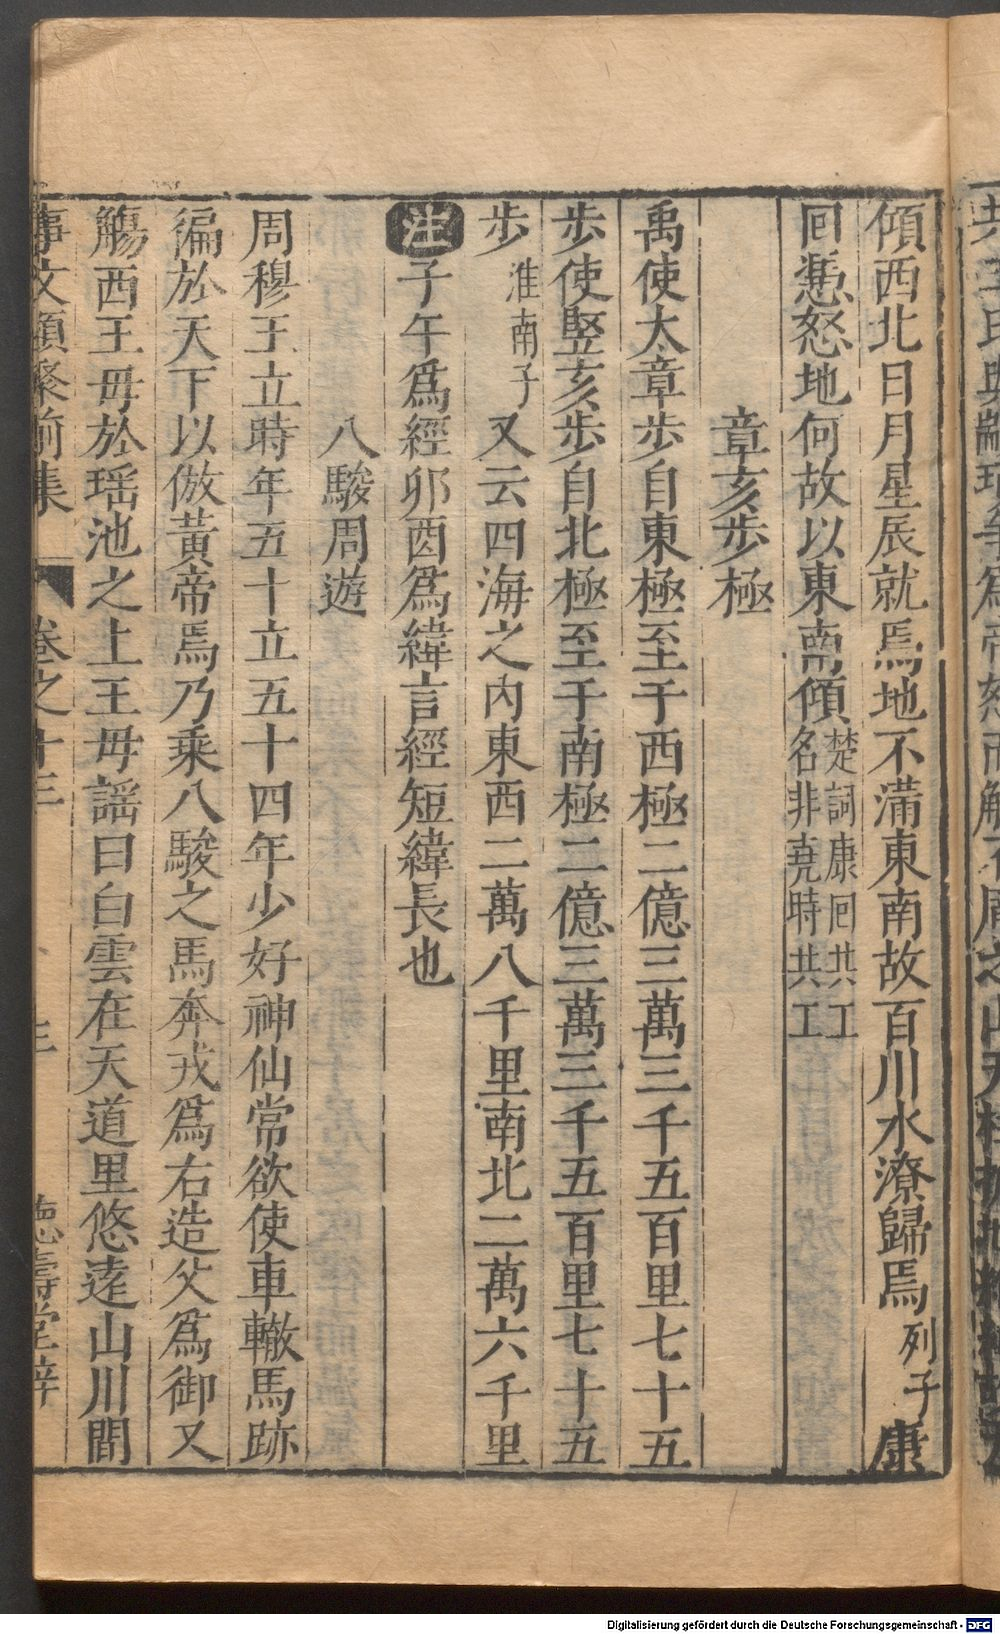 傾西北日月星辰就焉地不滿東南故百川水潦歸焉列子康
囘憑怒地何故以東南傾楚詞康囘共工名非堯時共工
章亥步極
禹使大章步自東極至于西極二億三萬三千五百里七十五
步使竪亥步自北極至于南極二億三萬三千五百里七十五
步淮南子又云四海之內東西二萬八千里南北二萬六千里
注子午爲經卯酉爲緯言經短緯長也
八駿周遊
周穆王立時年五十立五十四年少好神仙常欲使車轍馬跡
徧於天下以倣黃帝焉乃乘八駿之馬奔戎爲右造父爲御又
觴西王毋於瑶池之上王毋謡曰白雲在天道里悠逺山川間
事文類聚前集 卷之十三 德壽堂梓
Digitalisierung gefördert durch die Deutsche Forschungsgemeinschaft - DFG